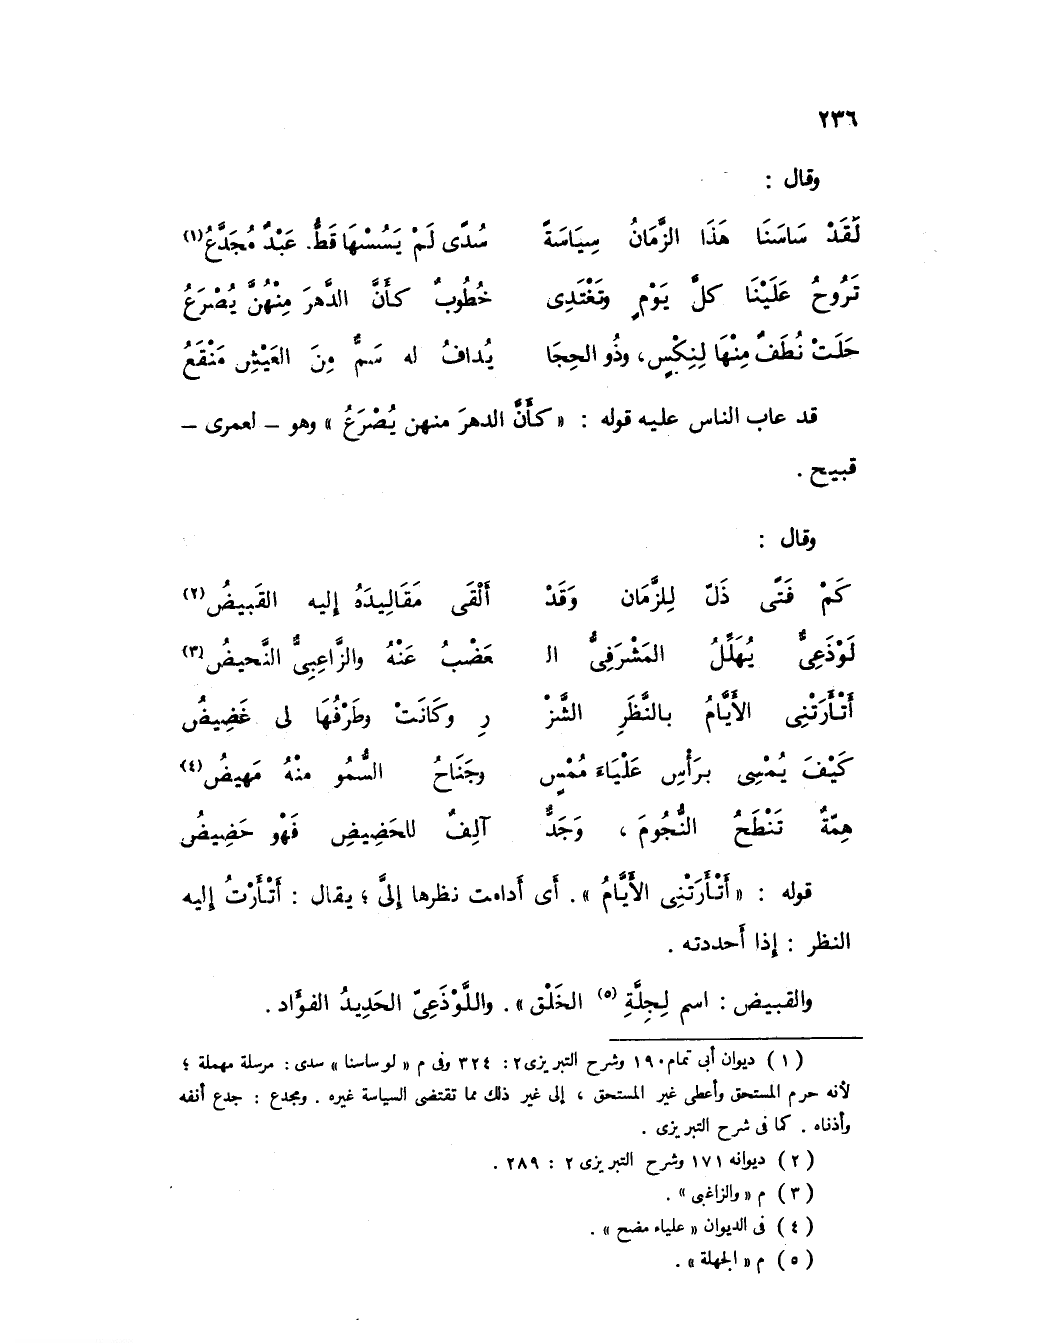 ٢٣٦
وقال :
لَقَدْ سَاسَنَا هَذَا الزَّمَانُ سِيَاسَةً سُدًى لَمْ يَسُسْهَا قَطُّ. عَبْدٌ مُجَدَّعُ(١)
تَرُوحُ عَلَيْنَا كلَّ يَوْمٍ وتَغْتَدِى خُطُوبٌ كأَنَّ الدَّهرَ مِنْهُنَّ يُصْرَعُ
حَلَتْ نُطَفٌ مِنْهَا لِنِكْسٍ، وذُو الحِجَا يُدافُ له سَمٌّ مِنَ العَيْشِ مَنْقَعُ
قد عاب الناس عليه قوله : « كأَنَّ الدهرَ منهن يُصْرَعُ » وهو – لعمرى –
قبيح .
وقال :
كَمْ فَتًى ذَلّ لِلزَّمَان وَقَدْ أَلْقَى مَقَالِيدَهُ إليه القَبيضُ(٢)
لَوْذَعِىٌّ يُهَلِّلُ المَشْرَفِىُّ الـ عَضْبُ عَنْهُ والزَّاعِبِىُّ النَّحيضُ(٣)
أَتْأَرَتْنِى الأَيَّامُ بالنَّظَرِ الشَّزْ رِ وكَانَتْ وطَرْفُهَا لى غَضِيضُ
كَيْفَ يُمْسِى برَأْسِ عَلْيَاءَ مُمْسٍ وجَنَاحُ السُّمُو منْهُ مَهيضُ(٤)
هِمّةٌ تَنْطَحُ النُّجُومَ ، وَجَدٌّ آلِفٌ للحَضِيضِ فَهْو حَضِيضُ
قوله : « أَتْأَرَتْنِى الأَيَّامُ ». أى أَدامت نظرها إِلىَّ ؛ يقال : أَتْأَرْتُ إِليه
النظر : إِذا أَحددته .
والقبيض : اسم لِجِلَّةِ (٥) الخَلْق ». واللَّوْذَعِىّ الحَدِيدُ الفؤَاد .
(١) ديوان أبى تمام ١٩٠ وشرح التبريزى ٢ : ٣٢٤ وفى م « لو ساسنا » سدى : مرسلة مهملة ؛
لأنه حرم المستحق وأعطى غير المستحق ، إلى غير ذلك مما تقتضى السياسة غيره . ومجدع : جدع أنفه
وأذناه . كما فى شرح التبريزى .
(٢) ديوانه ١٧١ وشرح التبريزى ٢ : ٢٨٩ .
(٣) م « والزاغبى » .
(٤) فى الديوان « علياء مضح » .
(٥) م « الجهلة » .